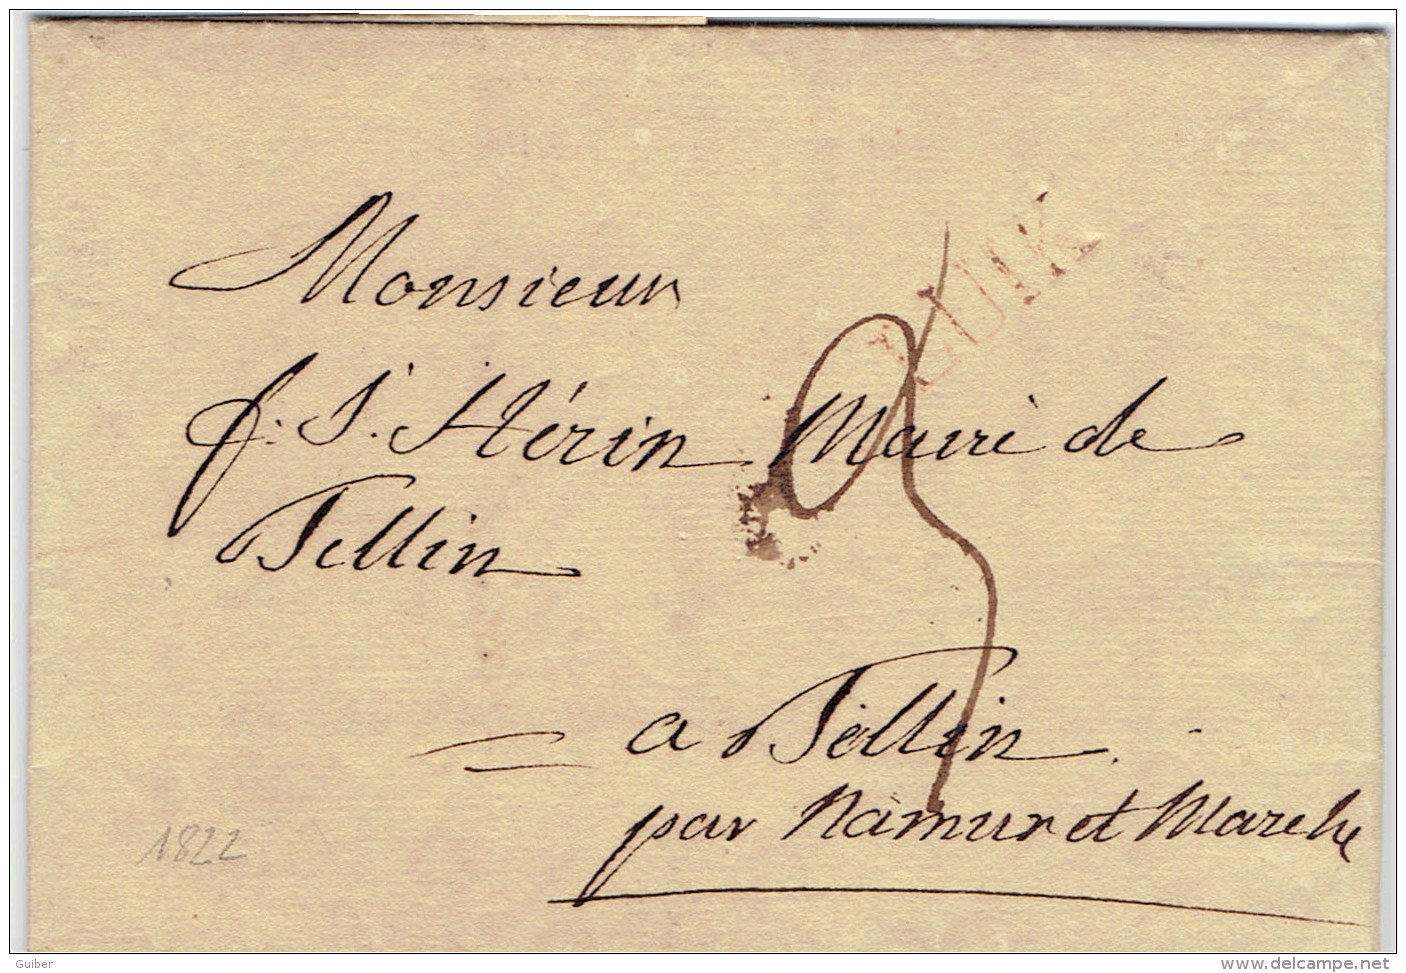 Monsieur
LUIK
f. S. Hérin Maire de
Tellin
a Tellin
par Namur et Marche
1822
Guiber
www.delcampe.net